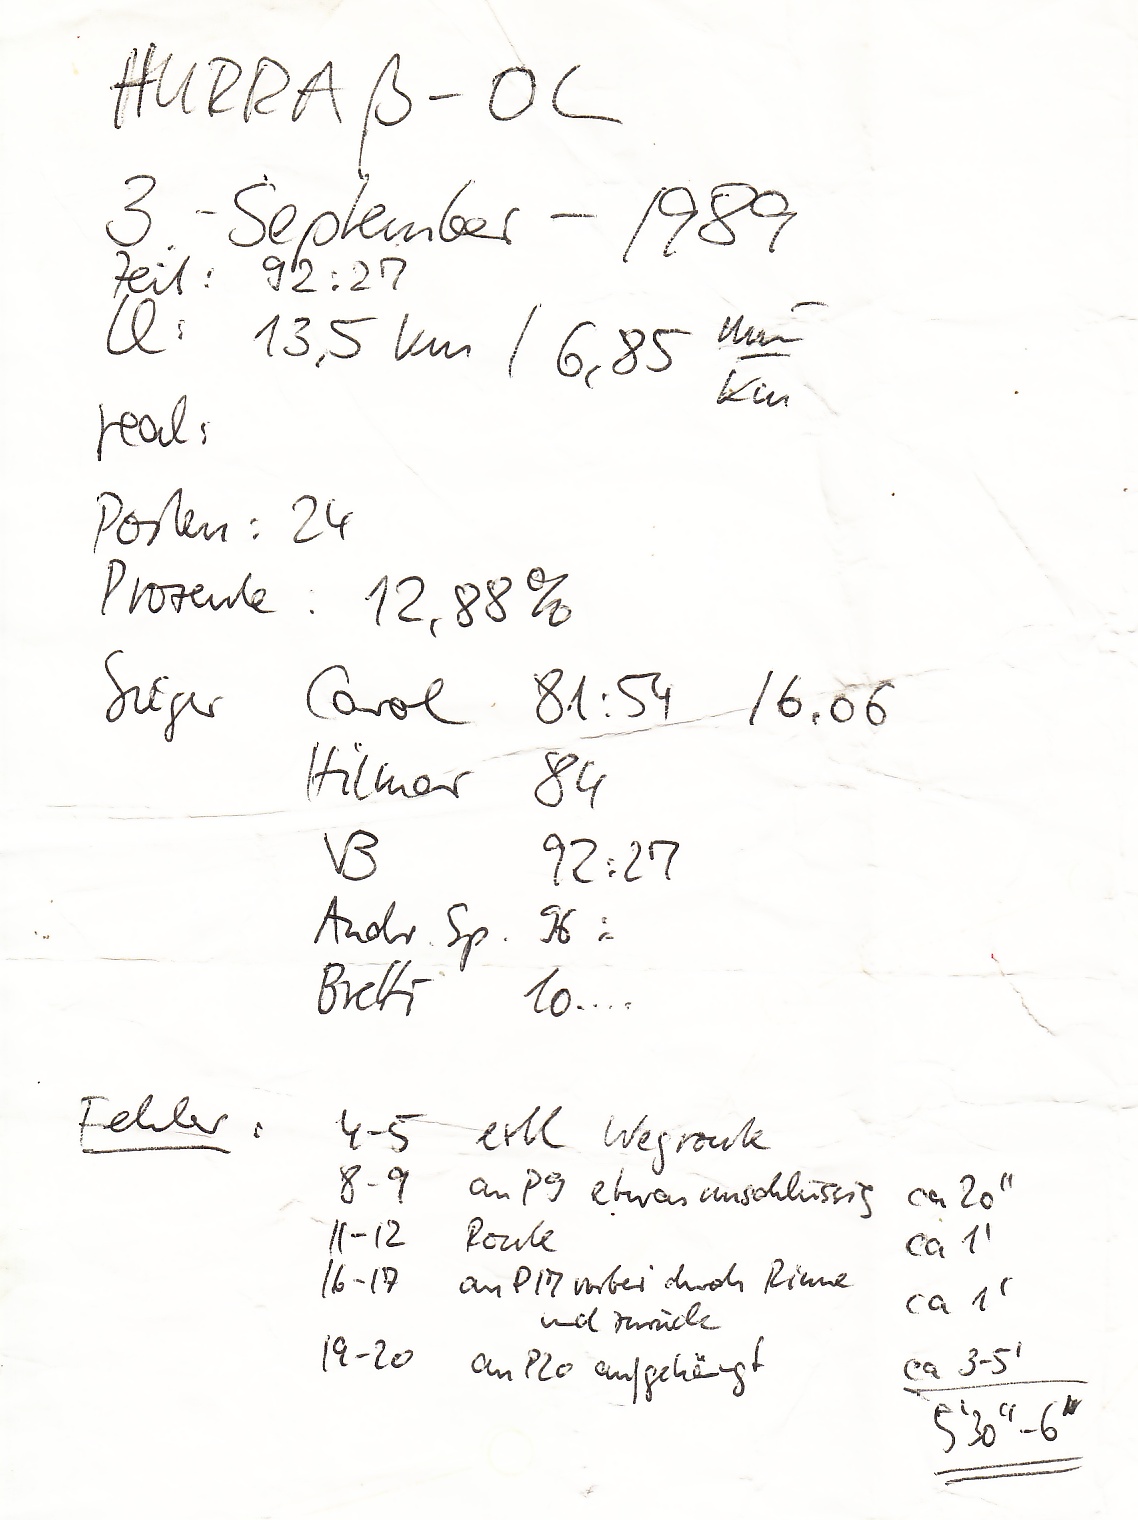 HURRAß - OL
3. - September - 1989
Zeit: 92:27
Ll: 13,5 km / 6,85 min/km
real:
Posten: 24
Prozente: 12,88%
Sieger Carol 81:54 /6.06
Hilmar 84
VB 92:27
Andr. Sp. 96:
Bretti 10....
Fehler: 4-5 evtl Wegroute
8-9 an P9 etwas unschlüssig ca 20"
11-12 Route ca 1'
16-17 an P17 vorbei durch Rinne ca 1'
und zurück
19-20 an P20 aufgehängt ca 3-5'
5'30"-6"